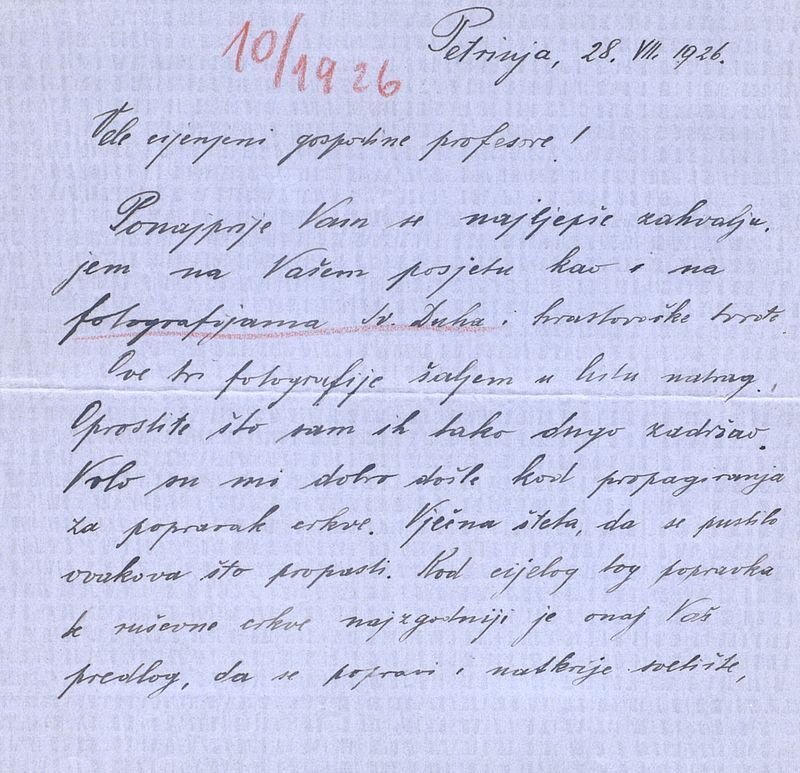 10/1926
Petrinja, 28. VII. 1926.
Vele cijenjeni gospodine profesore!
Ponajprije Vam se najljepše zahvalju-
jem na Vašem posjetu kao i na
fotografijama Sv Duha i hrastovečke tvrđe.
Ove tri fotografije šaljem u listu natrag.
Oprostite što sam ih tako dugo zadržao.
Vrlo su mi dobro došle kod propagiranja
za popravak crkve. Vječna šteta, da se pustilo
ovakova što propasti. Kod cijelog tog popravka
te ruševne crkve najzgodniji je onaj Vaš
predlog, da se popravi i natkrije svetište,